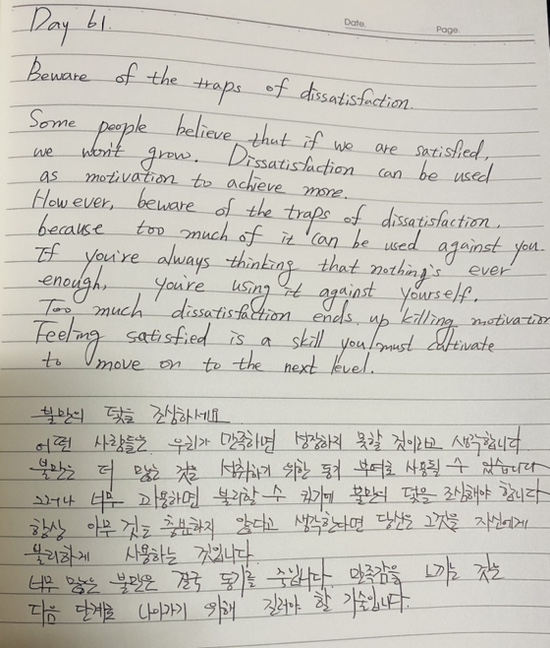 Day 61.
Date.
Page
Beware of the traps of dissatisfaction.
Some people believe that if we are satisfied,
we won't grow. Dissatisfaction can be used
as motivation to achieve more.
However, beware of the traps of dissatisfaction,
because too much of it can be used against you.
If you're always thinking that nothing's ever
enough, you're using it against yourself.
Too much dissatisfaction ends up killing motivation
Feeling satisfied is a skill you must cultivate
to move on to the next level.
불만의 덫을 조심하세요
어떤 사람들은 우리가 만족하면 성장하지 못할 것이라고 생각합니다
불만은 더 많은 것을 성취하기 위한 동기 부여로 사용될 수 있습니다
그러나 너무 과용하면 불리할 수 있기에 불만의 덫을 조심해야 합니다
항상 아무 것도 충분하지 않다고 생각한다면 당신은 그것을 자신에게
불리하게 사용하는 것입니다.
너무 많은 불만은 결국 동기를 죽입니다. 만족감을 느끼는 것은
다음 단계로 나아가기 위해 길러야 할 기술입니다.